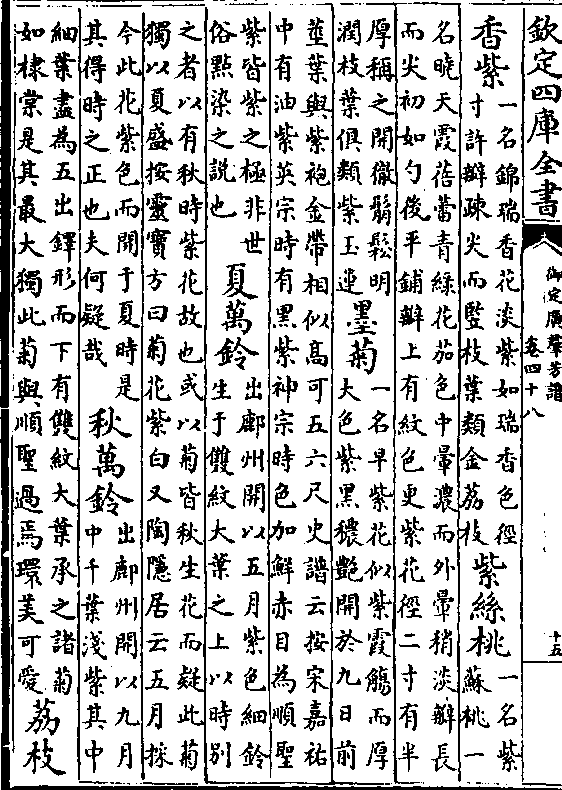 欽定四庫全書
御定廣羣芳譜
卷四十八
十五
香紫
一名錦瑞香花淡紫如瑞香色徑
寸許瓣疎尖而豎枝葉類金荔枝
紫絲桃
一名紫
蘇桃一
名曉天霞蓓蕾青綠花茄色中暈濃而外暈稍淡瓣長
而尖初如勺後平鋪瓣上有紋色更紫花徑二寸有半
厚稱之開徹鬅鬆明
潤枝葉俱類紫玉連
墨菊
一名早紫花似紫霞觴而厚
大色紫黑穠艷開於九日前
莖葉與紫袍金帶相似高可五六尺史譜云按宋嘉祐
中有油紫英宗時有黑紫神宗時色加鮮赤目為順聖
紫皆紫之極非世
俗點染之說也
夏萬鈴
出鄜州開以五月紫色細鈴
生于雙紋大葉之上以時別
之者以有秋時紫花故也或以菊皆秋生花而疑此菊
獨以夏盛按靈寶方曰菊花紫白又陶隱居云五月採
今此花紫色而開于夏時是
其得時之正也夫何疑哉
秋萬鈴
出鄜州開以九月
中千葉淺紫其中
細葉盡為五出鐸形而下有雙紋大葉承之諸菊
如棣棠是其最大獨此菊與順聖過焉環美可愛
荔枝